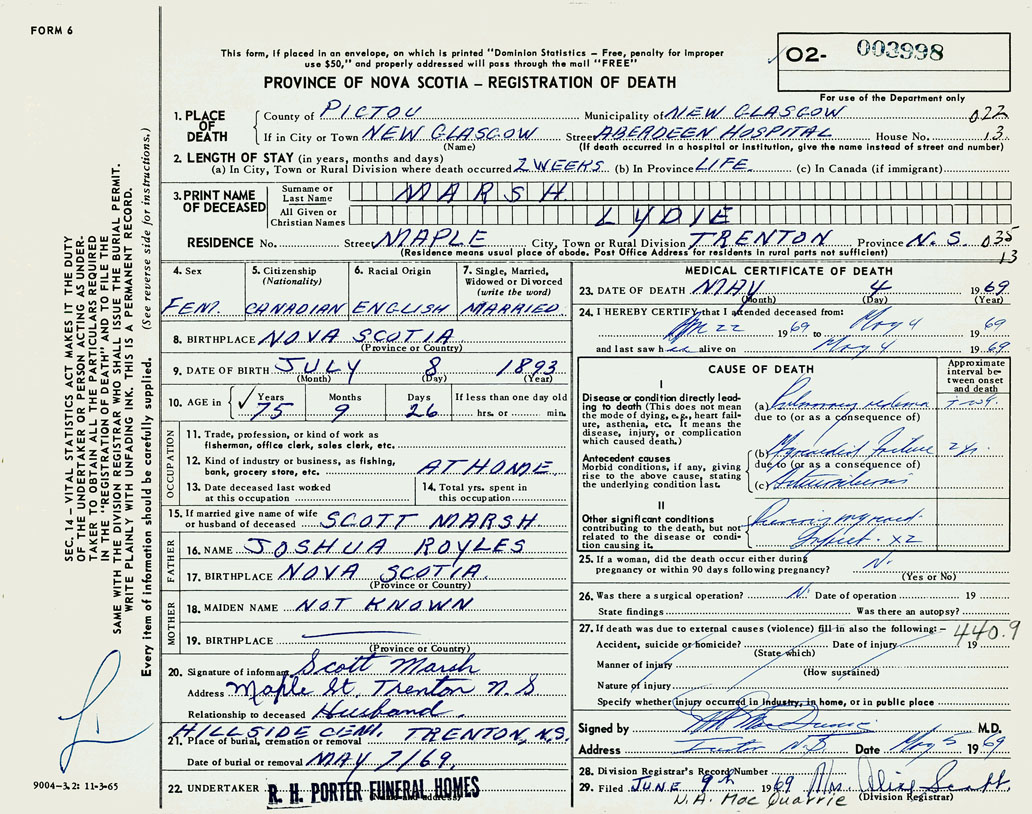 FORM 6
This form, if placed in an envelope, on which is printed "Dominion Statistics – Free, penalty for improper
use $50," and properly addressed will pass through the mail "FREE"
PROVINCE OF NOVA SCOTIA – REGISTRATION OF DEATH
O2- 003998
For use of the Department only
1. PLACE OF DEATH
County of PICTOU Municipality of NEW GLASGOW 022
If in City or Town NEW GLASGOW Street ABERDEEN HOSPITAL House No. 13
(Name) (If death occurred in a hospital or institution, give the name instead of street and number)
2. LENGTH OF STAY (in years, months and days)
(a) In City, Town or Rural Division where death occurred 2 WEEKS (b) In Province LIFE (c) In Canada (if immigrant)
3. PRINT NAME OF DECEASED
Surname or Last Name MARSH
All Given or Christian Names LYDIE
RESIDENCE No. Street MAPLE City, Town or Rural Division TRENTON Province N.S. 035
(Residence means usual place of abode. Post Office Address for residents in rural parts not sufficient) 13
4. Sex FEM.
5. Citizenship (Nationality) CANADIAN
6. Racial Origin ENGLISH
7. Single, Married, Widowed or Divorced (write the word) MARRIED
8. BIRTHPLACE NOVA SCOTIA
(Province or Country)
9. DATE OF BIRTH JULY 8 1893
(Month) (Day) (Year)
10. AGE in Years 75 Months 9 Days 26 If less than one day old hrs. or min.
OCCUPATION
11. Trade, profession, or kind of work as
fisherman, office clerk, sales clerk, etc.
12. Kind of industry or business, as fishing,
bank, grocery store, etc. AT HOME
13. Date deceased last worked
at this occupation
14. Total yrs. spent in
this occupation
15. If married give name of wife
or husband of deceased SCOTT MARSH
FATHER
16. NAME JOSHUA ROYLES
17. BIRTHPLACE NOVA SCOTIA
(Province or Country)
MOTHER
18. MAIDEN NAME NOT KNOWN
19. BIRTHPLACE
(Province or Country)
20. Signature of informant Scott Marsh
Address Maple St. Trenton N S
Relationship to deceased Husband
21. Place of burial, cremation or removal HILLSIDE CEM. TRENTON, N.S.
Date of burial or removal MAY 7/69
22. UNDERTAKER R. H. PORTER FUNERAL HOMES
(Name and address)
MEDICAL CERTIFICATE OF DEATH
23. DATE OF DEATH MAY 4 1969
(Month) (Day) (Year)
24. I HEREBY CERTIFY that I attended deceased from:
22 1969 to May 4 1969
and last saw h alive on May 4 1969
CAUSE OF DEATH
Approximate interval between onset and death
I
Disease or condition directly leading to death (This does not
mean the mode of dying, e.g., heart failure, asthenia, etc. It means the
disease, injury, or complication
which caused death.)
(a) Pulmonary edema
due to (or as a consequence of)
Antecedent causes
Morbid conditions, if any, giving
rise to the above cause, stating
the underlying condition last.
(b) Myocardial failure
due to (or as a consequence of)
(c)
II
Other significant conditions
contributing to the death, but not
related to the disease or condition causing it.
Previous myocard.
Infarct. x2
25. If a woman, did the death occur either during
pregnancy or within 90 days following pregnancy?
(Yes or No)
26. Was there a surgical operation? Date of operation 19
State findings Was there an autopsy?
27. If death was due to external causes (violence) fill in also the following: – 440.9
Accident, suicide or homicide? Date of injury 19
(State which)
Manner of injury
(How sustained)
Nature of injury
Specify whether injury occurred in industry, in home, or in public place
Signed by M.D.
Address N.S Date May 5 1969
28. Division Registrar's Record Number
29. Filed JUNE 9th 1969 Mrs. Alice Scott
N.A. MacQuarrie (Division Registrar)
SEC. 14 – VITAL STATISTICS ACT MAKES IT THE DUTY
OF THE UNDERTAKER OR PERSON ACTING AS UNDER-
TAKER TO OBTAIN ALL THE PARTICULARS REQUIRED
IN THE "REGISTRATION OF DEATH" AND TO FILE THE
SAME WITH THE DIVISION REGISTRAR WHO SHALL ISSUE THE BURIAL PERMIT.
WRITE PLAINLY WITH UNFADING INK. THIS IS A PERMANENT RECORD.
Every item of information should be carefully supplied. (See reverse side for instructions.)
9004-3.2: 11-3-65